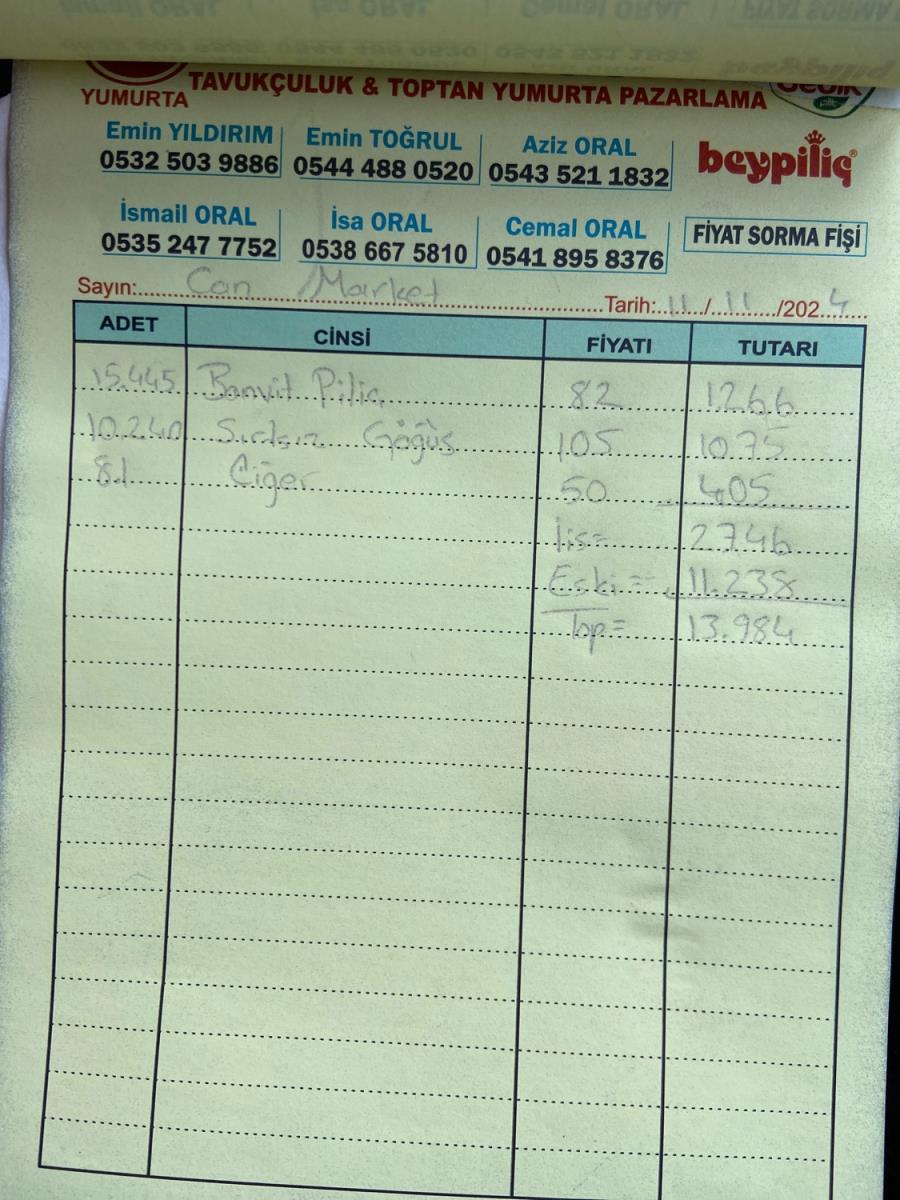 YUMURTA
TAVUKÇULUK & TOPTAN YUMURTA PAZARLAMA
Emin YILDIRIM
0532 503 9886
Emin TOĞRUL
0544 488 0520
Aziz ORAL
0543 521 1832
beypiliç®
İsmail ORAL
0535 247 7752
İsa ORAL
0538 667 5810
Cemal ORAL
0541 895 8376
FİYAT SORMA FİŞİ
Sayın: Can Market Tarih: 11/11/2024
ADET CİNSİ FİYATI TUTARI
15.445 Banvit Piliç 82 1266
10.240 Göğüs 105 10.75
8.1 Ciğer 50 405
fis= 2746
Eski= 11.238
Top= 13.984